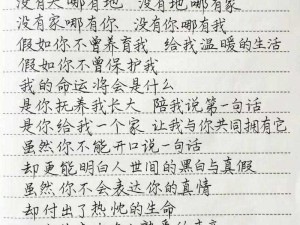 没有天哪有地 没有地哪有家
没有家哪有你 没有你哪有我
假如你不曾养育我 给我温暖的生活
假如你不曾保护我
我的命运将会是什么
是你抚养我长大 陪我说第一句话
是你给我一个家 让我与你共同拥有它
虽然你不能开口说一句话
却更能明白人世间的黑白与真假
虽然你不会表达你的真情
却付出了热忱的生命